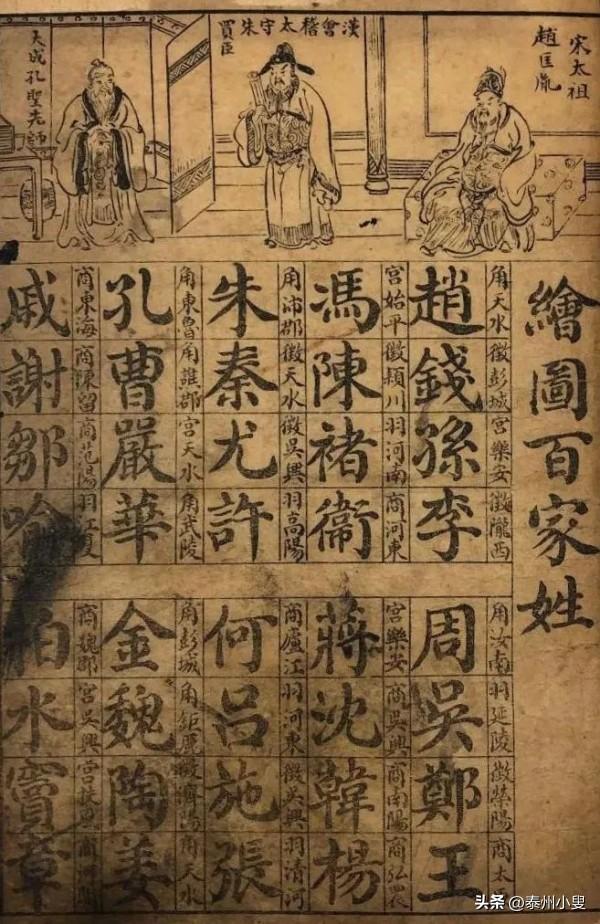 宋太祖
趙匡胤
漢會稽太守朱
買臣
大成孔聖先師
繪圖百家姓
角天水 徵彭城 宮樂安 徵隴西
趙錢孫李
宮始平 徵潁川 羽河南 商河東
馮陳褚衛
角沛郡 徵天水 徵吳興 羽高陽
朱秦尤許
角東魯 角譙郡 宮天水 角武陵
孔曹嚴華
商東海 商陳留 商范陽 羽江夏
戚謝鄒喻
角汝南 羽延陵 徵滎陽 商太
周吳鄭王
宮樂安 商吳興 商南陽 商弘農
蔣沈韓楊
商廬江 羽河東 徵吳興 羽清河
何呂施張
角彭城 角鉅鹿 徵濟陽 角天水
金魏陶姜
商魏郡 宮吳興 宮扶 商河
柏水竇章
头条 @泰州小叟